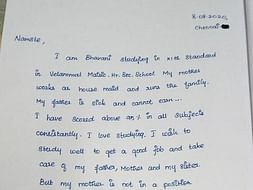 8-08-2025
Chennai
Namaste,
I am Bhavani studying in XIth Standard
in Velammal Matric. Hr. Sec. School. My mother
works as house maid and runs the family.
My father is sick and cannot earn...
I have scored above 95% in all subjects
consistantly. I love studying. I want to
study well to get a good job and take
care of my father, Mother and my sister.
But my mother is not in a position